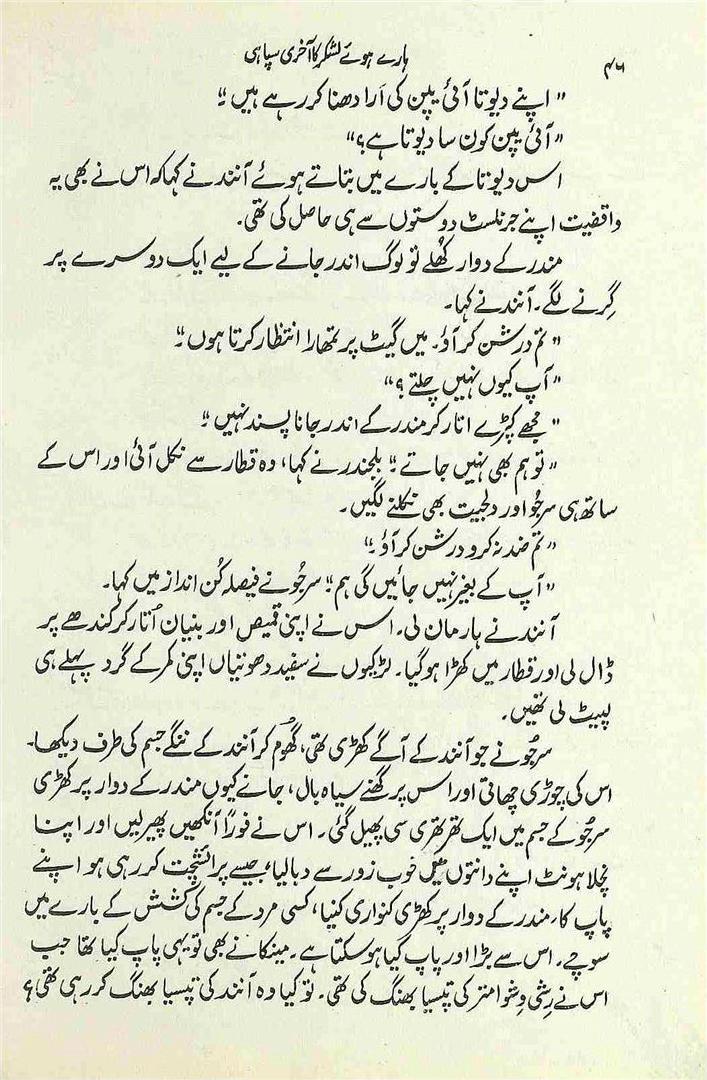 ۴۶ ہارے ہوئے لشکر کا آخری سپاہی
"اپنے دیوتا آئی یپن کی اَرادھنا کر رہے ہیں۔"
"آئی یپن کون سا دیوتا ہے؟"
اس دیوتا کے بارے میں بتاتے ہوئے آنند نے کہا کہ اس نے بھی یہ
واقفیت اپنے جرنلسٹ دوستوں سے ہی حاصل کی تھی۔
مندر کے دوار کھُلے تو لوگ اندر جانے کے لیے ایک دوسرے پر
گِرنے لگے۔ آنند نے کہا۔
"تم درشن کر آؤ۔ میں گیٹ پر تمھارا انتظار کرتا ہوں۔"
"آپ کیوں نہیں چلتے؟"
"مجھے کپڑے اتار کر مندر کے اندر جانا پسند نہیں۔"
"تو ہم بھی نہیں جاتے۔" بلجندر نے کہا، وہ قطار سے نکل آئی اور اس کے
ساتھ ہی سرجُو اور دلجیت بھی نکلنے لگیں۔
"تم ضد نہ کرو درشن کر آؤ۔"
"آپ کے بغیر نہیں جائیں گی ہم۔" سرجُو نے فیصلہ کُن انداز میں کہا۔
آنند نے ہار مان لی۔ اس نے اپنی قمیص اور بنیان اُتار کر کندھے پر
ڈال لی اور قطار میں کھڑا ہو گیا۔ لڑکیوں نے سفید دھوتیاں اپنی کمر کے گرد پہلے ہی
لپیٹ لی تھیں۔
سرجُو نے جو آنند کے آگے کھڑی تھی، گھُوم کر آنند کے ننگے جسم کی طرف دیکھا۔
اس کی چوڑی چھاتی اور اس پر گھنے سیاہ بال، جانے کیوں مندر کے دوار پر کھڑی
سرجُو کے جسم میں ایک تھرتھری سی پھیل گئی۔ اس نے فوراً آنکھیں پھیر لیں اور اپنا
نچلا ہونٹ اپنے دانتوں میں خوب زور سے دبا لیا، جیسے پرائشچت کر رہی ہو اپنے
پاپ کا، مندر کے دوار پر کھڑی کنواری کنیا، کسی مرد کے جسم کی کشش کے بارے میں
سوچے۔ اس سے بڑا اور پاپ کیا ہو سکتا ہے۔ مینکا نے بھی تو یہی پاپ کیا تھا جب
اس نے رِشی وِشوامتر کی تپسیا بھنگ کی تھی۔ تو کیا وہ آنند کی تپسیا بھنگ کر رہی تھی؟